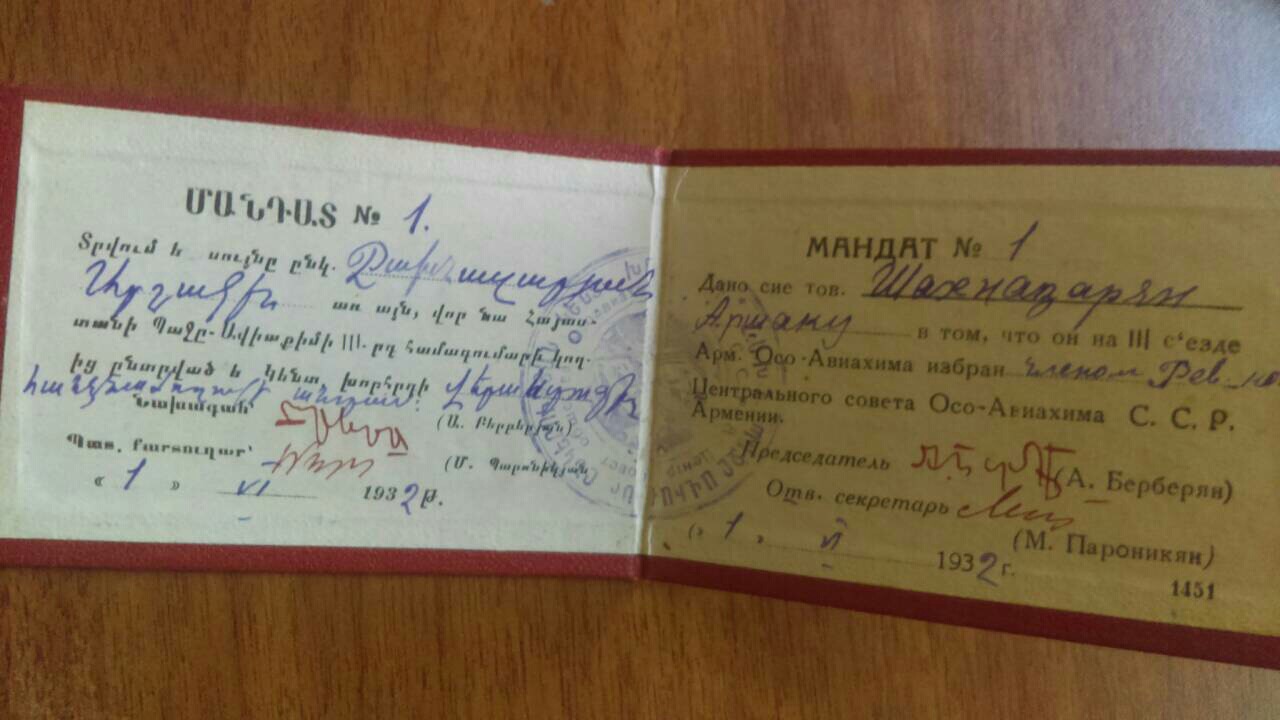 ՄԱՆԴԱՏ № 1.
Տրվում է սույնը ընկ. Շախնազարյան
Արշակին առ այն, վոր նա Հայաս-
տանի Պաշտ-Ավիաքիմի III-րդ Համագումարի կող-
մից ընտրված է կենտ. խորհրդի
անդամ
Նախագահ՝
(Ա. Բերբերյան)
Պատ. քարտուղար՝
(Մ. Պարոնիկյան
« 1 » VI 1932 թ.
МАНДАТ № 1
Дано сие тов. Шахназарян
Аршаку в том, что он на III с'езде
Арм. Осо-Авиахима избран членом Рев.
Центрального совета Осо-Авиахима С. С. Р.
Армении.
Председатель (А. Берберян)
Отв. секретарь
(М. Пароникян)
« 1 » VI 1932 г.
1451